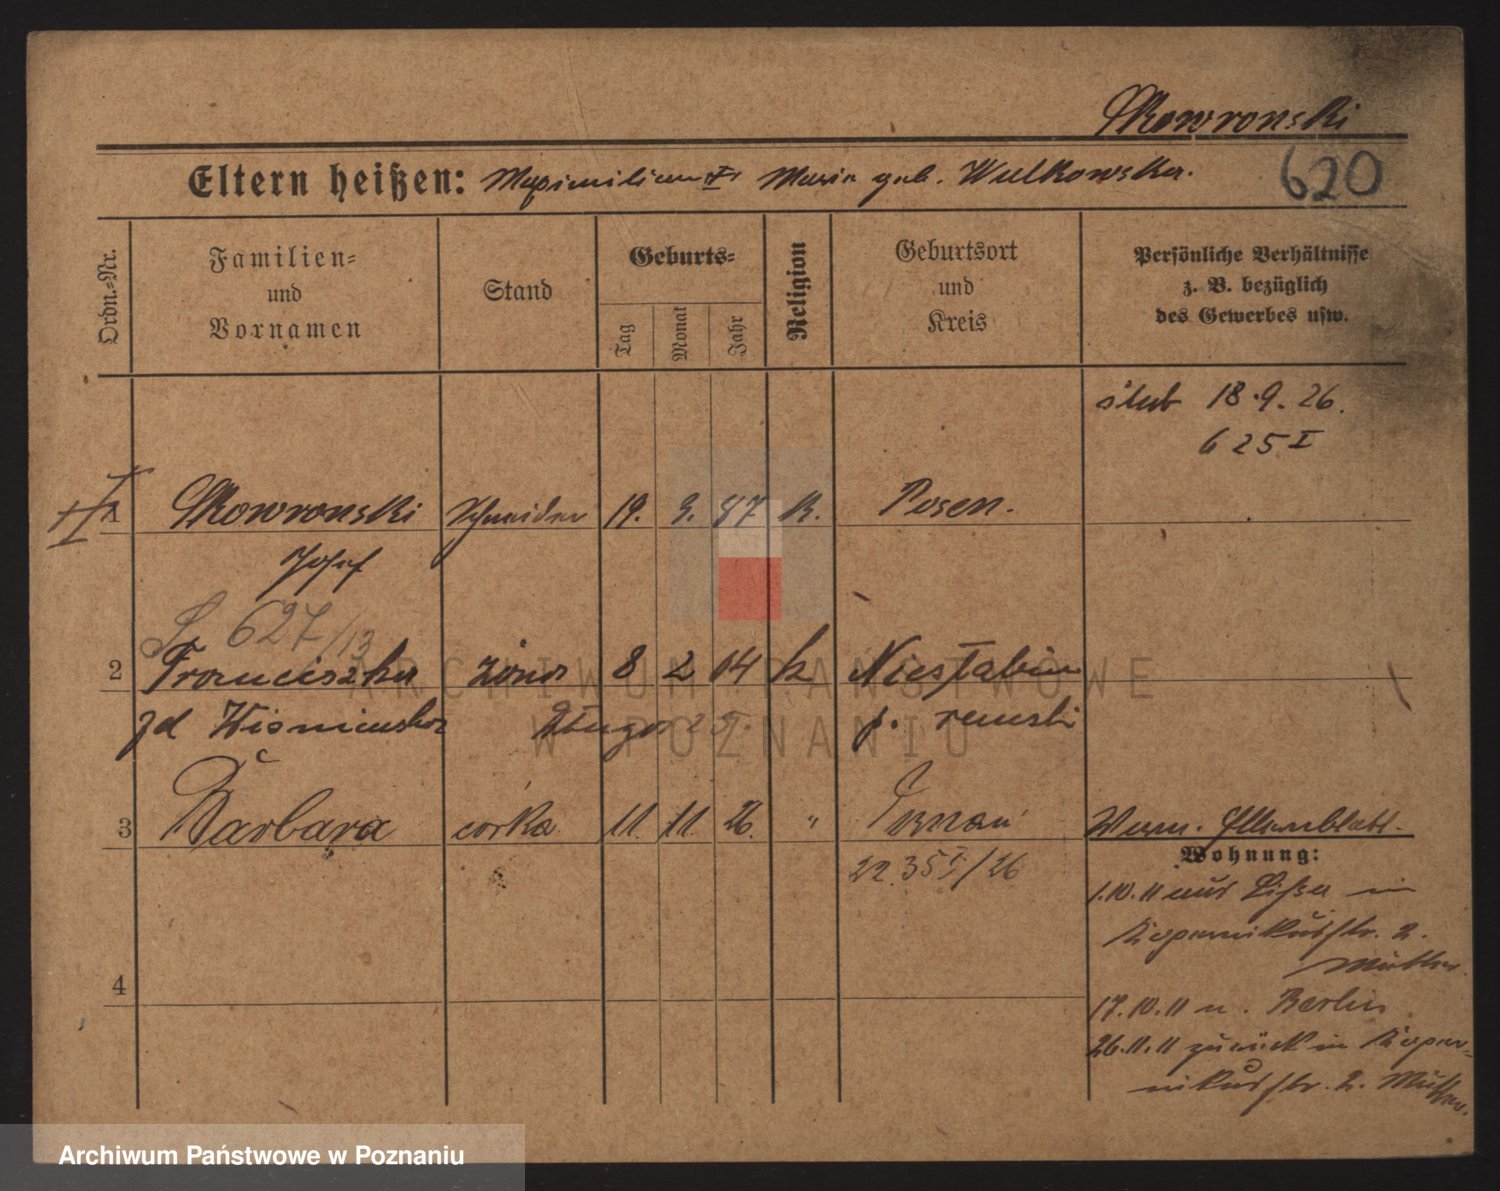 Skowronski
Eltern heißen: Maximilian u. Maria geb. Wulkowska.
620
Ordn.-Nr.
Familien-
und
Vornamen
Stand
Geburts-
Tag
Monat
Jahr
Religion
Geburtsort
und
Kreis
Persönliche Verhältnisse
z. B. bezüglich
des Gewerbes usw.
ślub 18.9.26.
625 I
1 Skowronski Schneider 19. 3. 87 k. Posen.
Josef
627/13
2 Franciszka żona 8 2 04 k
zd Wiśniewska
3 Barbara córka 11. 11. 26. " Poznań
22.35 I/26
Wohnung:
1.10.11 aus Lissa in
Kopernikusstr. 2.
Mutter.
17.10.11 n. Berlin
26.11.11 zurück in Koper-
nikusstr. 2. Mutter.
4
ARCHIWUM PAŃSTWOWE
W POZNANIU
Archiwum Państwowe w Poznaniu